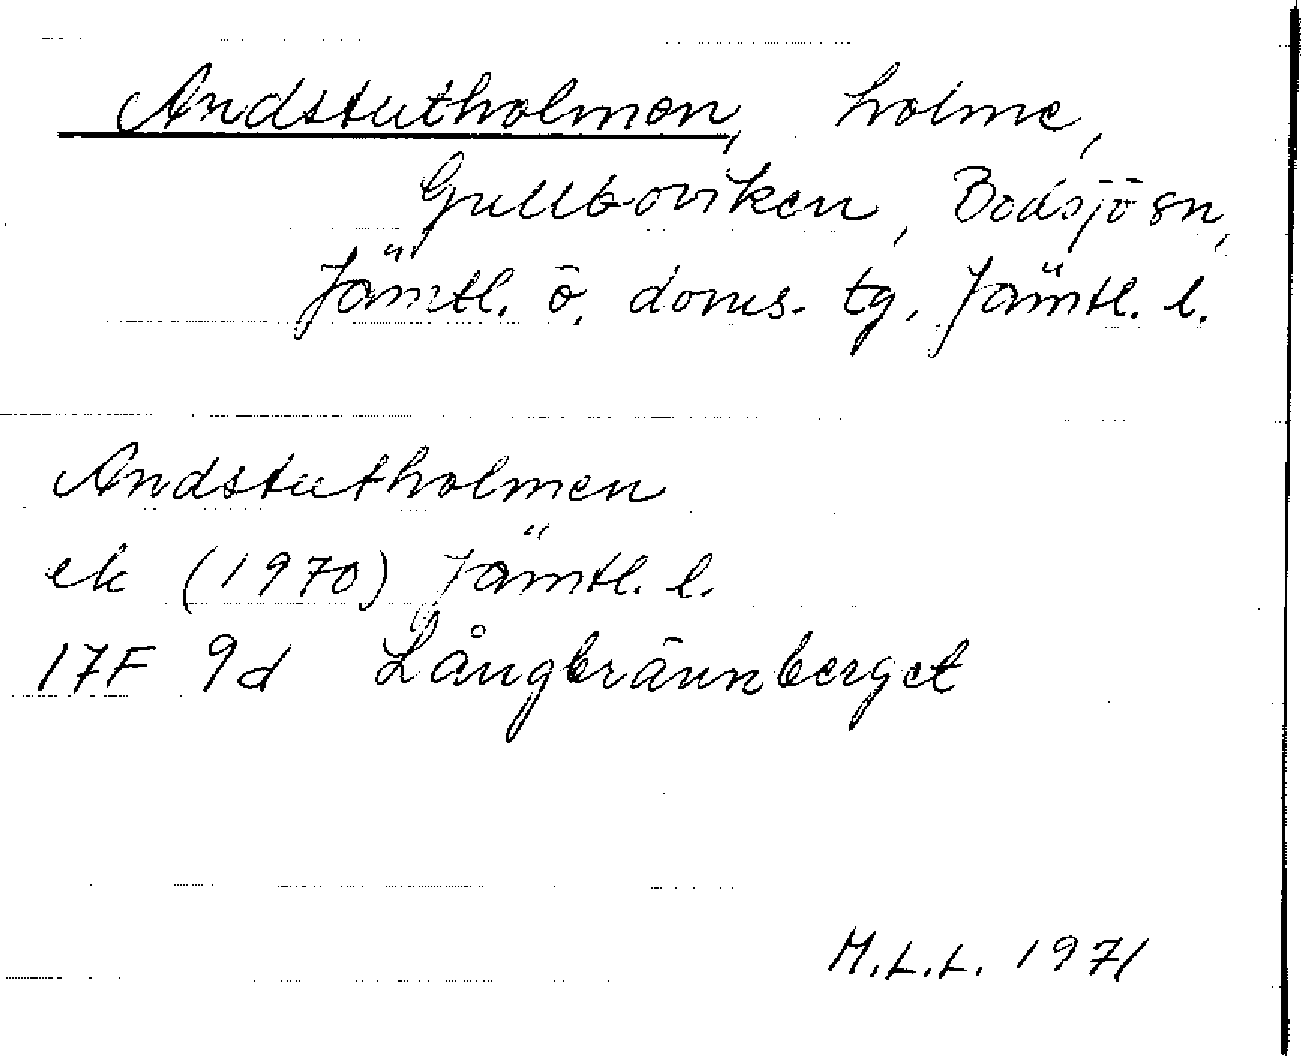 Andstutholmen, holme,
Gullboviken, Bodsjö sn,
Jämtl. ö. doms. tg, Jämtl. l.
Andstutholmen
ek (1970) Jämtl. l.
17F 9d Långbrännberget
M.L.L. 1971